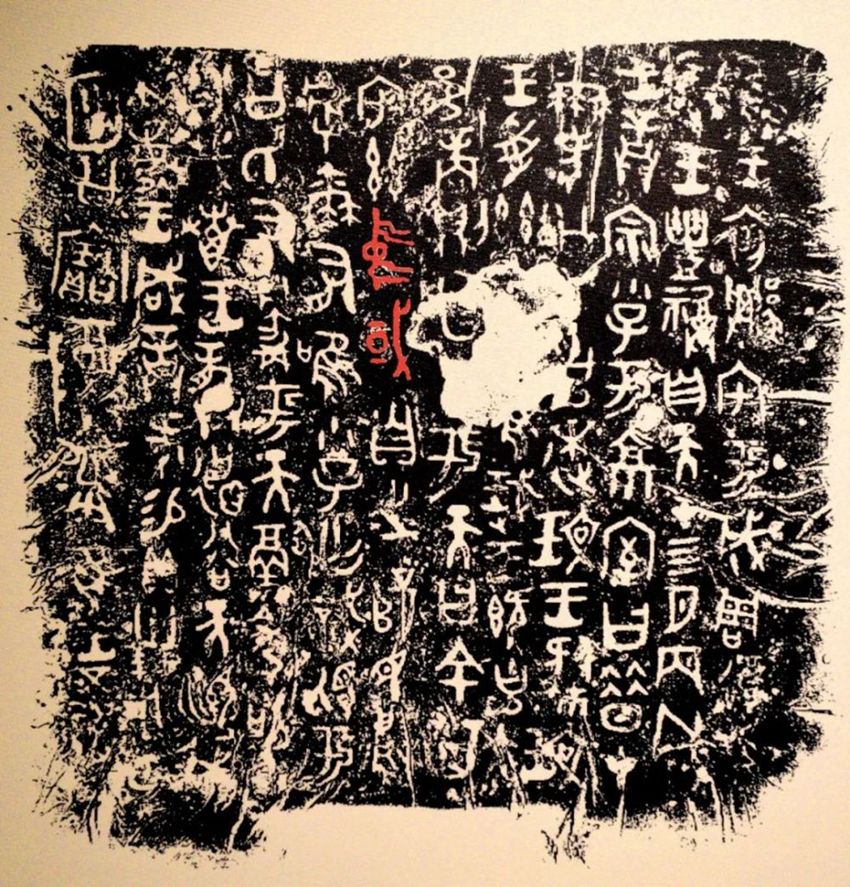 隹王初遷宅于成周復稟
王豐福自天才四月丙戌
王誥宗小子于京室曰昔才
爾考公氏克逨玟王肆玟
王受茲王既克大
邑商則廷告于天曰余其
宅茲中或自之辥民烏
虖爾有唯小子亡識視于
公氏有爵于天徹令敬
享哉叀王龏德谷天順我
不敏王咸誥何易貝卅朋用乍
公寶尊彝隹王五祀